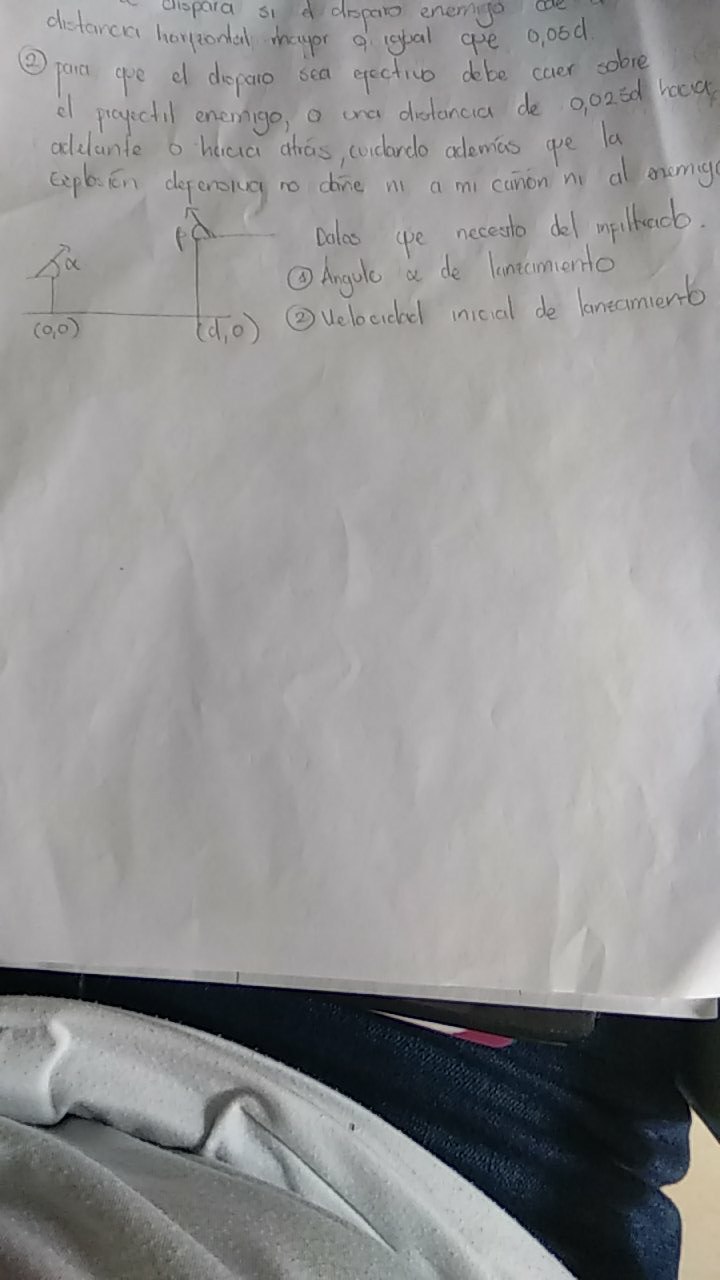 dispara si el disparo enemigo cae a
distancia horizontal mayor o igual que 0,05d
② para que el disparo sea efectivo debe caer sobre
el proyectil enemigo, o una distancia de 0,025d hacia
adelante o hacia atrás, cuidando además que la
explosión defensiva no dañe ni a mi cañón ni al enemigo
Datos que necesito del infiltrado.
① Ángulo α de lanzamiento
② Velocidad inicial de lanzamiento
α
β
(0,0)
(d,0)